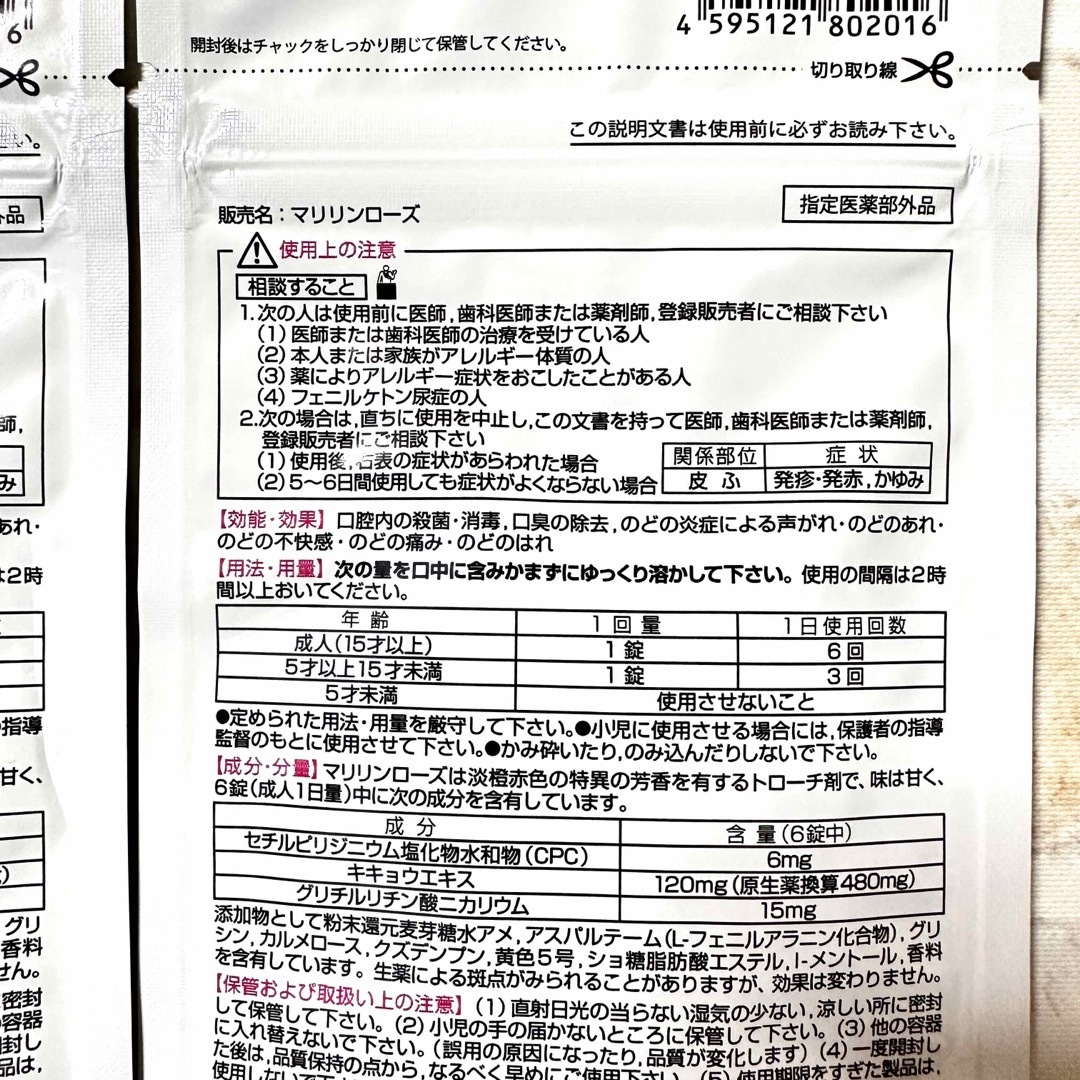 6
4 595121 802016
開封後はチャックをしっかり閉じて保管してください。
切り取り線
この説明文書は使用前に必ずお読み下さい。
販売名：マリリンローズ
指定医薬部外品
使用上の注意
相談すること
1.次の人は使用前に医師,歯科医師または薬剤師,登録販売者にご相談下さい
(1) 医師または歯科医師の治療を受けている人
(2) 本人または家族がアレルギー体質の人
(3) 薬によりアレルギー症状をおこしたことがある人
(4) フェニルケトン尿症の人
2.次の場合は,直ちに使用を中止し,この文書を持って医師,歯科医師または薬剤師,
登録販売者にご相談下さい
(1) 使用後,右表の症状があらわれた場合
(2) 5〜6日間使用しても症状がよくならない場合
関係部位 症状
皮ふ 発疹・発赤,かゆみ
【効能・効果】口腔内の殺菌・消毒,口臭の除去,のどの炎症による声がれ・のどのあれ・
のどの不快感・のどの痛み・のどのはれ
【用法・用量】次の量を口中に含みかまずにゆっくり溶かして下さい。使用の間隔は2時
間以上おいてください。
年齢 1回量 1日使用回数
成人(15才以上) 1錠 6回
5才以上15才未満 1錠 3回
5才未満 使用させないこと
●定められた用法・用量を厳守して下さい。●小児に使用させる場合には,保護者の指導
監督のもとに使用させて下さい。●かみ砕いたり,のみ込んだりしないで下さい。
【成分・分量】マリリンローズは淡橙赤色の特異の芳香を有するトローチ剤で、味は甘く、
6錠(成人1日量)中に次の成分を含有しています。
成分 含量(6錠中)
セチルピリジニウム塩化物水和物(CPC) 6mg
キキョウエキス 120mg(原生薬換算480mg)
グリチルリチン酸二カリウム 15mg
添加物として粉末還元麦芽糖水アメ,アスパルテーム(L-フェニルアラニン化合物),グリ
シン,カルメロース,クズデンプン,黄色5号,ショ糖脂肪酸エステル,l-メントール,香料
を含有しています。生薬による斑点がみられることがありますが、効果は変わりません。
【保管および取扱い上の注意】(1) 直射日光の当らない湿気の少ない,涼しい所に密封
して保管して下さい。(2) 小児の手の届かないところに保管して下さい。(3) 他の容器
に入れ替えないで下さい。(誤用の原因になったり,品質が変化します) (4) 一度開封し
た後は,品質保持の点から,なるべく早めにご使用下さい。(5) 使用期限をすぎた製品は,
使用しないで下